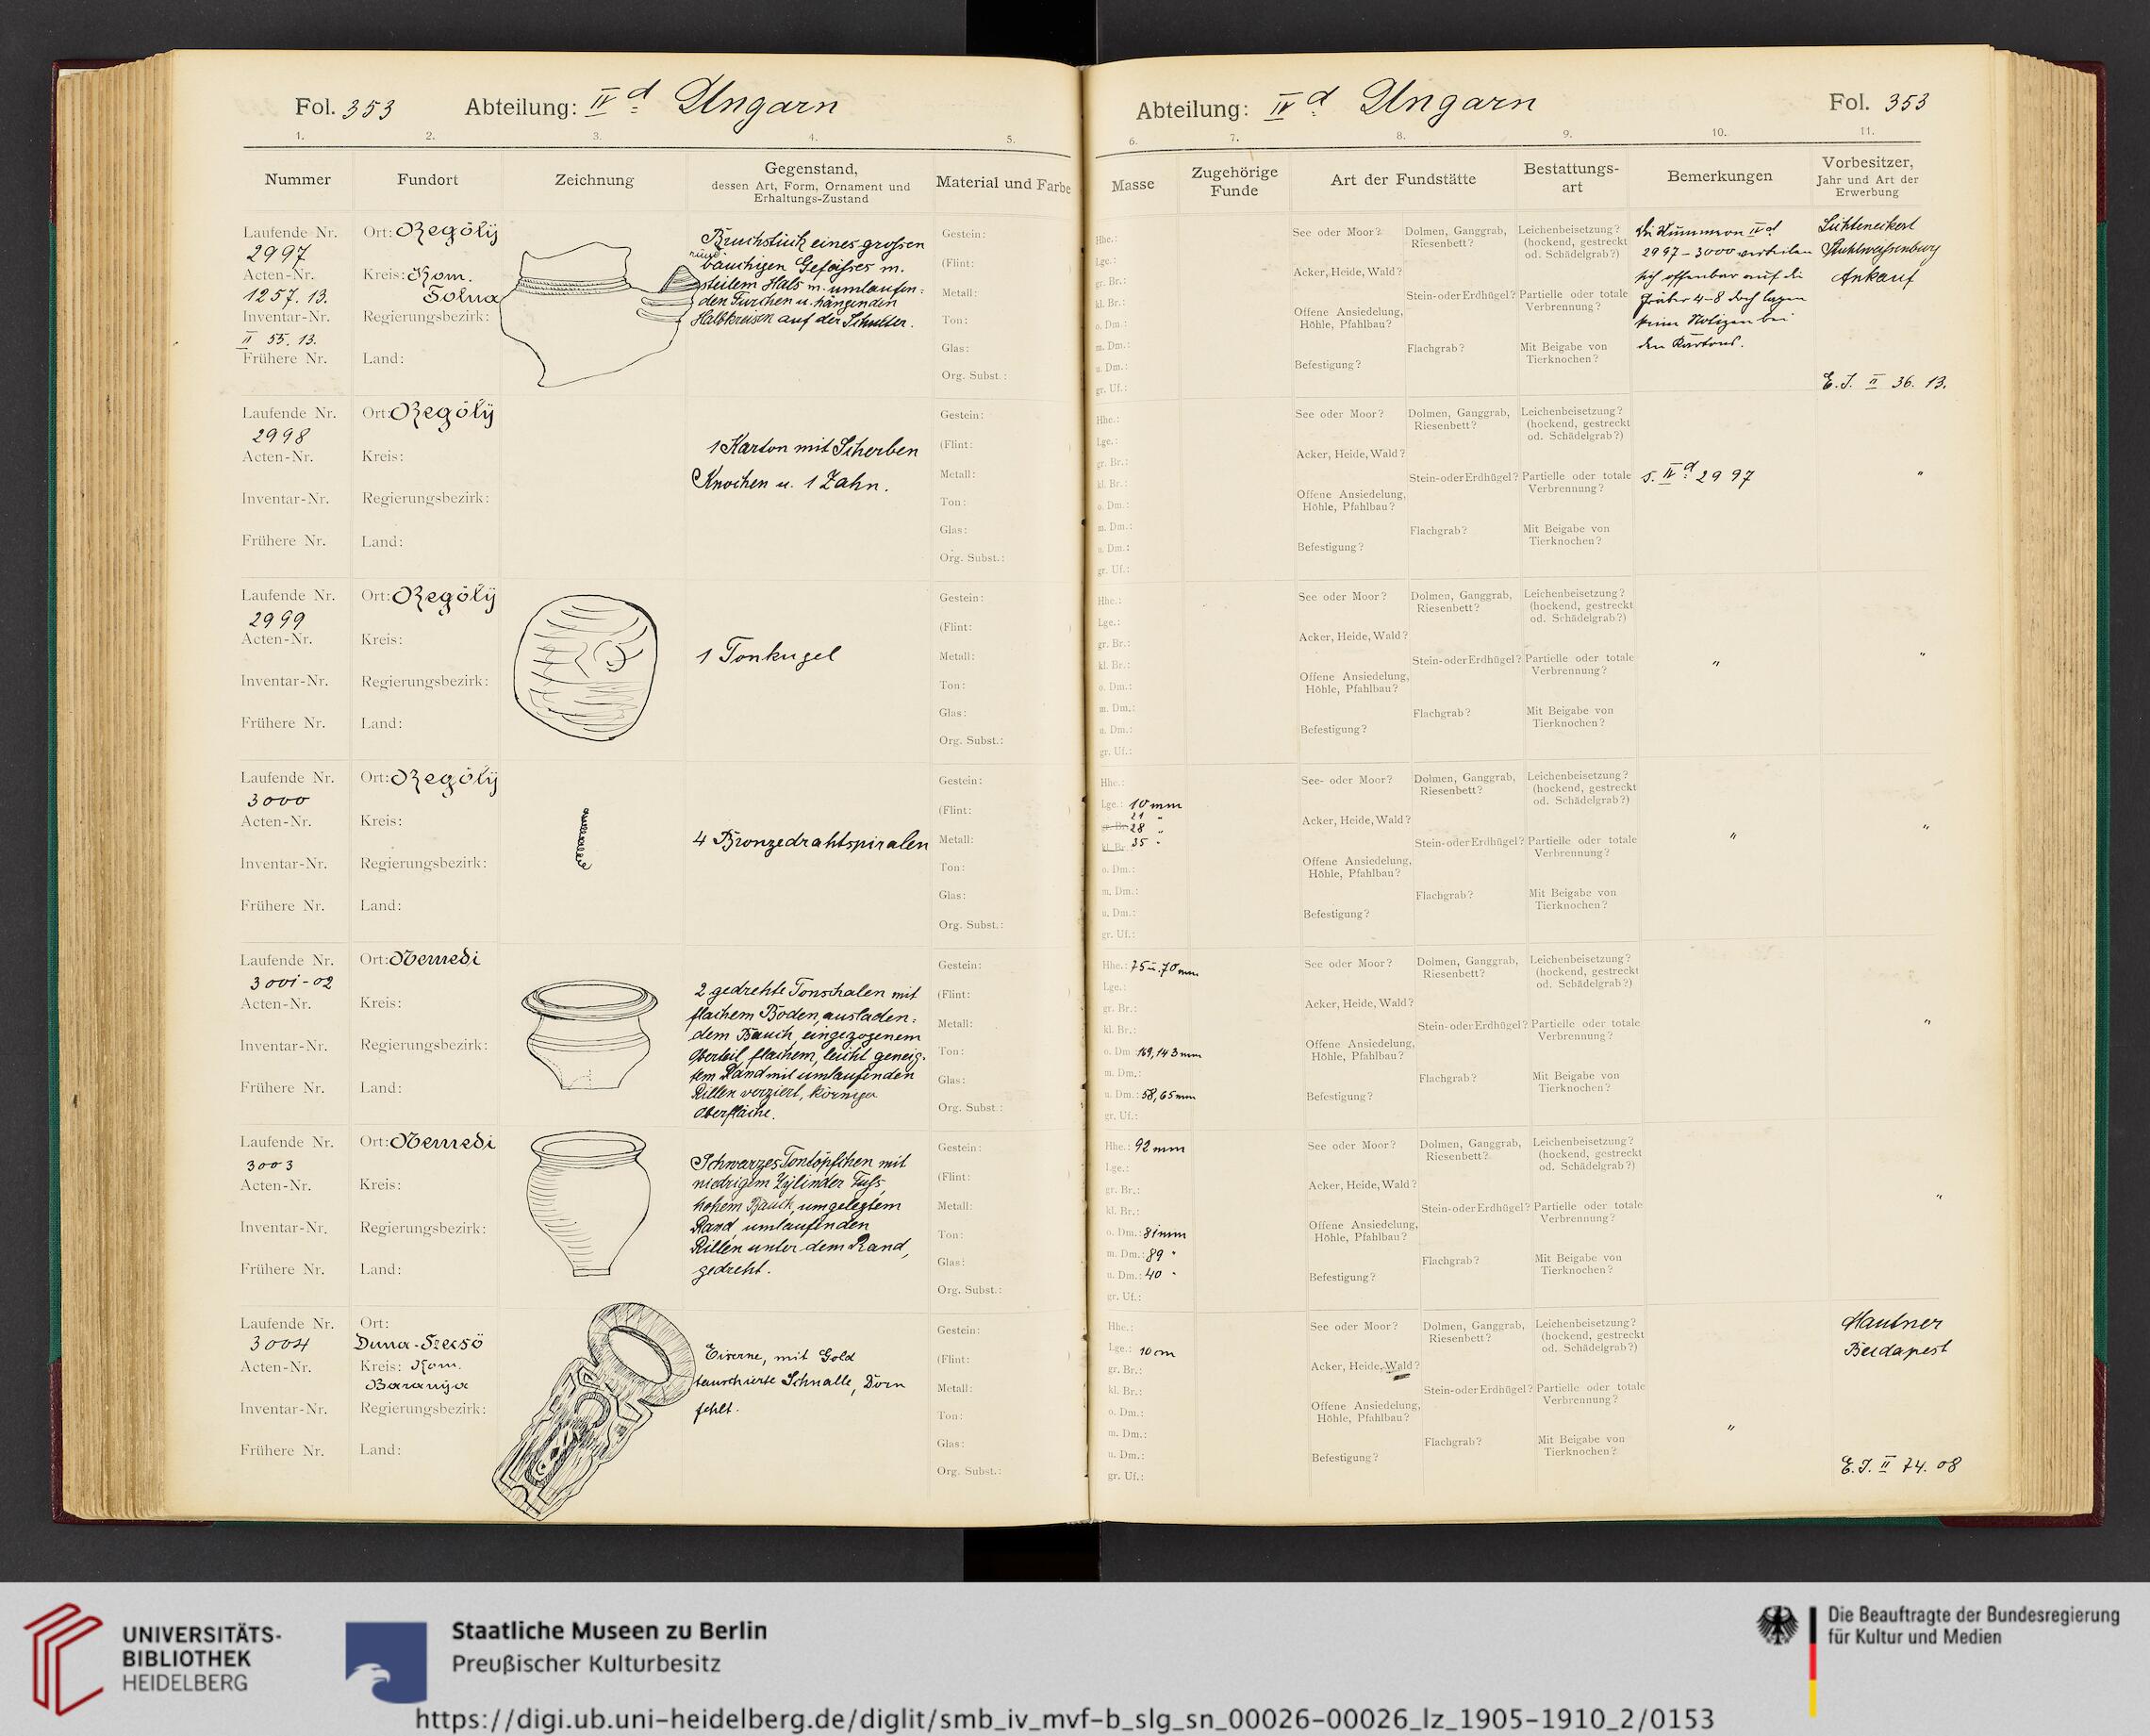 Fol. 353 Abteilung: IV d Ungarn
1. 2. 3. 4. 5.
Nummer Fundort Zeichnung Gegenstand, dessen Art, Form, Ornament und Erhaltungs-Zustand Material und Farbe
Laufende Nr.
2997
Acten-Nr.
1257. 13.
Inventar-Nr.
II 55. 13.
Frühere Nr.
Ort: Regöly
Kreis: Kom.
Tolna
Regierungsbezirk:
Land:
Bruchstück eines grossen
bauchigen Gefässes m.
steilem Hals m. umlaufen-
den Furchen u. hängenden
Halbkreisen auf der Schulter.
Gestein:
(Flint:
Metall:
Ton:
Glas:
Org. Subst.:
Laufende Nr.
2998
Acten-Nr.
Inventar-Nr.
Frühere Nr.
Ort: Regöly
Kreis:
Regierungsbezirk:
Land:
1 Karton mit Scherben
Knochen u. 1 Zahn.
Gestein:
(Flint:
Metall:
Ton:
Glas:
Org. Subst.:
Laufende Nr.
2999
Acten-Nr.
Inventar-Nr.
Frühere Nr.
Ort: Regöly
Kreis:
Regierungsbezirk:
Land:
1 Tonkugel
Gestein:
(Flint:
Metall:
Ton:
Glas:
Org. Subst.:
Laufende Nr.
3000
Acten-Nr.
Inventar-Nr.
Frühere Nr.
Ort: Regöly
Kreis:
Regierungsbezirk:
Land:
4 Bronzedrahtspiralen
Gestein:
(Flint:
Metall:
Ton:
Glas:
Org. Subst.:
Laufende Nr.
3001-02
Acten-Nr.
Inventar-Nr.
Frühere Nr.
Ort: Nemedi
Kreis:
Regierungsbezirk:
Land:
2 gedrehte Tonschalen mit
flachem Boden, ausladen-
dem Bauch, eingezogenem
Oberteil, flachem, leicht geneig-
tem Rand mit umlaufenden
Rillen verziert, körniger
Oberfläche.
Gestein:
(Flint:
Metall:
Ton:
Glas:
Org. Subst:
Laufende Nr.
3003
Acten-Nr.
Inventar-Nr.
Frühere Nr.
Ort: Nemedi
Kreis:
Regierungsbezirk:
Land:
Schwarzes Tontöpfchen mit
niedrigem Zylinder Fuss,
hohem Bauch, umgelegtem
Rand umlaufenden
Rillen unter dem Rand,
gedreht.
Gestein:
(Flint:
Metall:
Ton:
Glas:
Org. Subst.:
Laufende Nr.
3004
Acten-Nr.
Inventar-Nr.
Frühere Nr.
Ort:
Duna-Szecsö
Kreis: Kom.
Baranya
Regierungsbezirk:
Land:
Eiserne, mit Gold
tauschierte Schnalle, Dorn
fehlt.
Gestein:
(Flint:
Metall:
Ton:
Glas:
Org. Subst.:
Abteilung: IV d Ungarn Fol. 353
6. 7. 8. 9. 10. 11.
Masse Zugehörige Funde Art der Fundstätte Bestattungsart Bemerkungen Vorbesitzer, Jahr und Art der Erwerbung
Hhe.:
Lge.:
gr. Br.:
kl. Br.:
o. Dm.:
m. Dm.:
u. Dm.:
gr. Uf.:
See oder Moor?
Acker, Heide, Wald?
Offene Ansiedelung,
Höhle, Pfahlbau?
Befestigung?
Dolmen, Ganggrab,
Riesenbett?
Stein- oder Erdhügel?
Flachgrab?
Leichenbeisetzung?
(hockend, gestreckt
od. Schädelgrab?)
Partielle oder totale
Verbrennung?
Mit Beigabe von
Tierknochen?
Die Nummern IV d
2997 - 3000 verteilen
sich offenbar auf die
Gräber 4-8 doch lagen
keine Notizen bei
den Kartons.
Lichteneckert
Stuhlweissenburg
Ankauf
E. J. II 36. 13.
Hhe.:
Lge.:
gr. Br.:
kl. Br.:
o. Dm.:
m. Dm.:
u. Dm.:
gr. Uf.:
See oder Moor?
Acker, Heide, Wald?
Offene Ansiedelung,
Höhle, Pfahlbau?
Befestigung?
Dolmen, Ganggrab,
Riesenbett?
Stein- oder Erdhügel?
Flachgrab?
Leichenbeisetzung?
(hockend, gestreckt
od. Schädelgrab?)
Partielle oder totale
Verbrennung?
Mit Beigabe von
Tierknochen?
s. IV d 2997
"
Hhe.:
Lge.:
gr. Br.:
kl. Br.:
o. Dm.:
m. Dm.:
u. Dm.:
gr. Uf.:
See oder Moor?
Acker, Heide, Wald?
Offene Ansiedelung,
Höhle, Pfahlbau?
Befestigung?
Dolmen, Ganggrab,
Riesenbett?
Stein- oder Erdhügel?
Flachgrab?
Leichenbeisetzung?
(hockend, gestreckt
od. Schädelgrab?)
Partielle oder totale
Verbrennung?
Mit Beigabe von
Tierknochen?
" "
Hhe.:
Lge.: 10 mm
21 "
gr. Br. 28 "
kl. Br. 35 "
o. Dm.:
m. Dm.:
u. Dm.:
gr. Uf.:
See- oder Moor?
Acker, Heide, Wald?
Offene Ansiedelung,
Höhle, Pfahlbau?
Befestigung?
Dolmen, Ganggrab,
Riesenbett?
Stein- oder Erdhügel?
Flachgrab?
Leichenbeisetzung?
(hockend, gestreckt
od. Schädelgrab?)
Partielle oder totale
Verbrennung?
Mit Beigabe von
Tierknochen?
" "
Hhe.: 75 u. 70 mm
Lge.:
gr. Br.:
kl. Br.:
o. Dm 169, 143 mm
m. Dm.:
u. Dm.: 58, 65 mm
gr. Uf.:
See oder Moor?
Acker, Heide, Wald?
Offene Ansiedelung,
Höhle, Pfahlbau?
Befestigung?
Dolmen, Ganggrab,
Riesenbett?
Stein- oder Erdhügel?
Flachgrab?
Leichenbeisetzung?
(hockend, gestreckt
od. Schädelgrab?)
Partielle oder totale
Verbrennung?
Mit Beigabe von
Tierknochen?
"
Hhe.: 92 mm
Lge.:
gr. Br.:
kl. Br.:
o. Dm.: 81 mm
m. Dm.: 89 "
u. Dm.: 40 "
gr. Uf.:
See oder Moor?
Acker, Heide, Wald?
Offene Ansiedelung,
Höhle, Pfahlbau?
Befestigung?
Dolmen, Ganggrab,
Riesenbett?
Stein- oder Erdhügel?
Flachgrab?
Leichenbeisetzung?
(hockend, gestreckt
od. Schädelgrab?)
Partielle oder totale
Verbrennung?
Mit Beigabe von
Tierknochen?
"
Hhe.:
Lge.: 10 cm
gr. Br.:
kl. Br.:
o. Dm.:
m. Dm.:
u. Dm.:
gr. Uf.:
See oder Moor?
Acker, Heide, Wald?
Offene Ansiedelung,
Höhle, Pfahlbau?
Befestigung?
Dolmen, Ganggrab,
Riesenbett?
Stein- oder Erdhügel?
Flachgrab?
Leichenbeisetzung?
(hockend, gestreckt
od. Schädelgrab?)
Partielle oder totale
Verbrennung?
Mit Beigabe von
Tierknochen?
"
Hautner
Budapest
E. J. II 74. 08
UNIVERSITÄTS-
BIBLIOTHEK
HEIDELBERG
Staatliche Museen zu Berlin
Preußischer Kulturbesitz
Die Beauftragte der Bundesregierung
für Kultur und Medien
https://digi.ub.uni-heidelberg.de/diglit/smb_iv_mvf-b_slg_sn_00026-00026_lz_1905-1910_2/0153